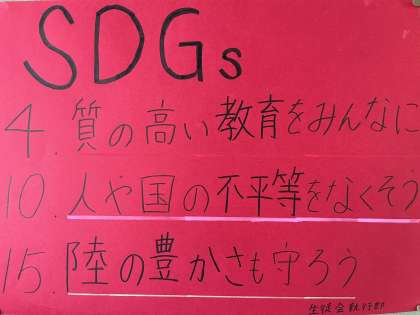 SDGs
4. 質の高い教育をみんなに
10. 人や国の不平等をなくそう
15. 陸の豊かさも守ろう
生徒会執行部